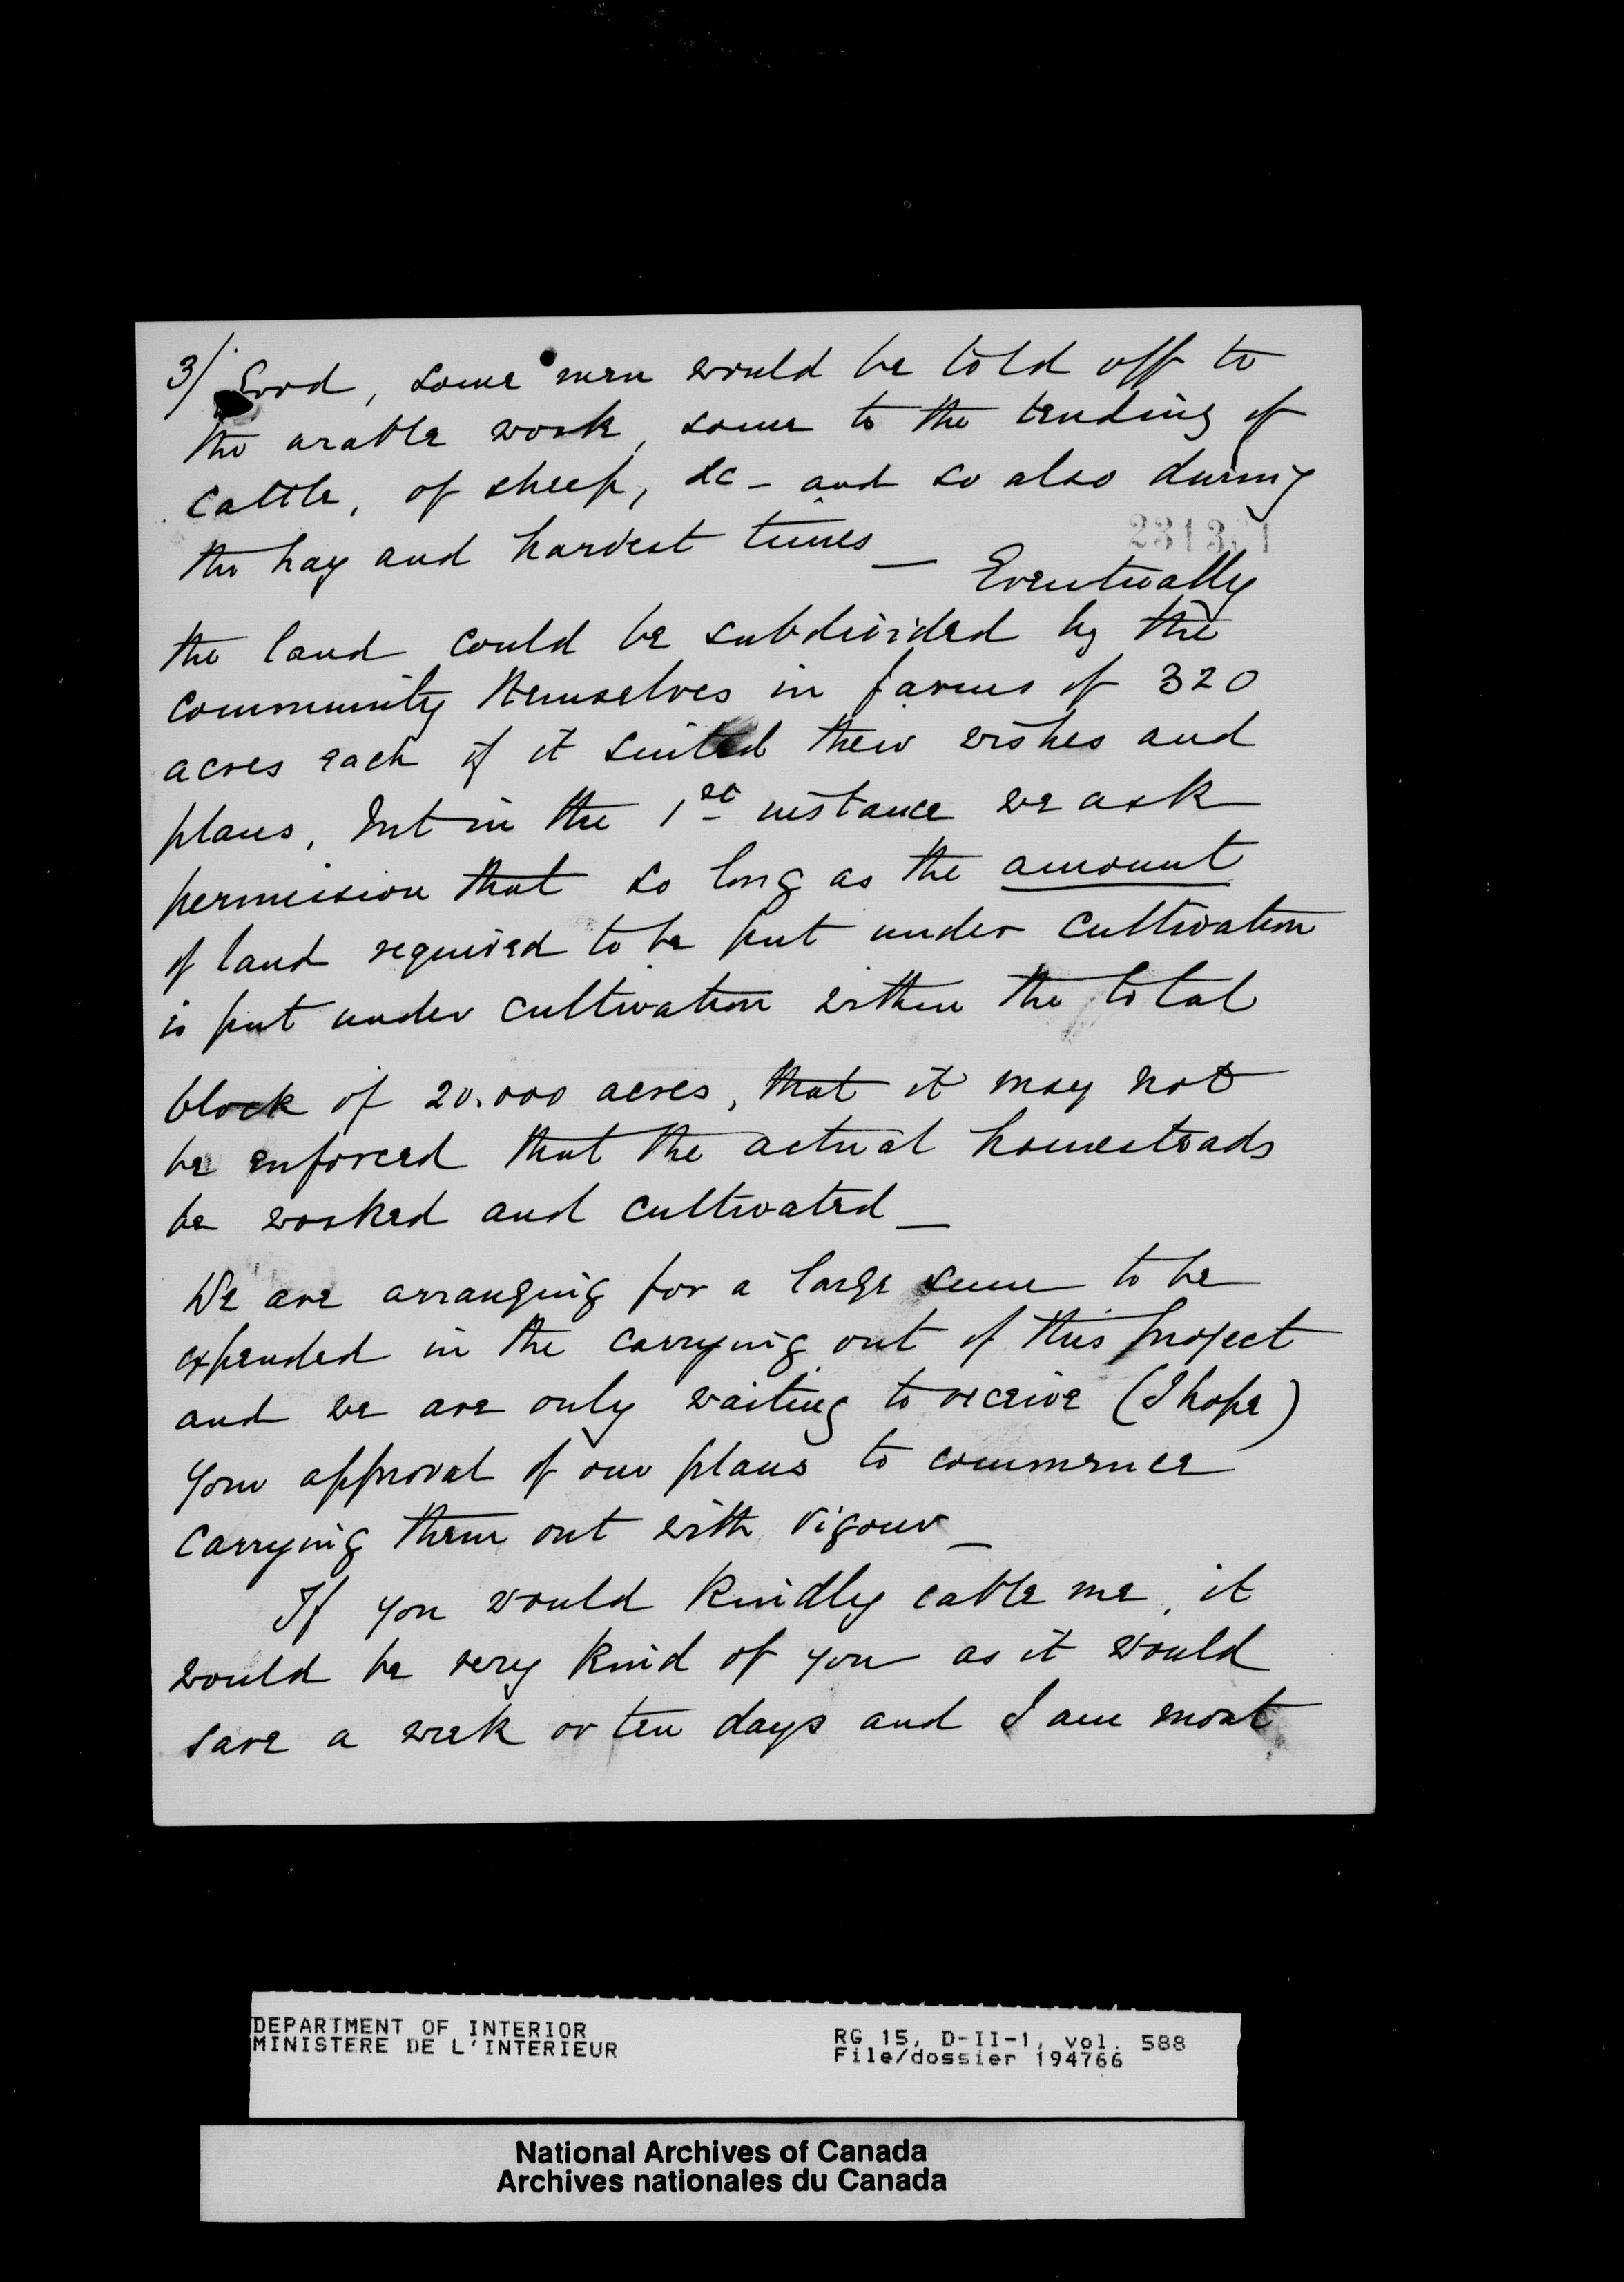 3/ Good, some men would be told off to
the arable work, some to the tending of
cattle, of sheep, &c - and so also during
the hay and harvest times _ Eventually
the land could be subdivided by the
community themselves in farms of 320
acres each if it suited their wishes and
plans, but in the 1st instance we ask
permission that so long as the amount
of land required to be put under cultivation
is put under cultivation within the total
block of 20.000 acres, that it may not
be enforced that the actual homesteads
be worked and cultivated _
We are arranging for a large sum to be
expended in the carrying out of this project
and we are only waiting to receive (I hope)
your approval of our plans to commence
carrying them out with vigour _
If you would kindly cable me, it
would be very kind of you as it would
save a week or ten days and I am most
DEPARTMENT OF INTERIOR
MINISTERE DE L'INTERIEUR
RG 15, D-II-1, vol. 588
File/dossier 194766
National Archives of Canada
Archives nationales du Canada